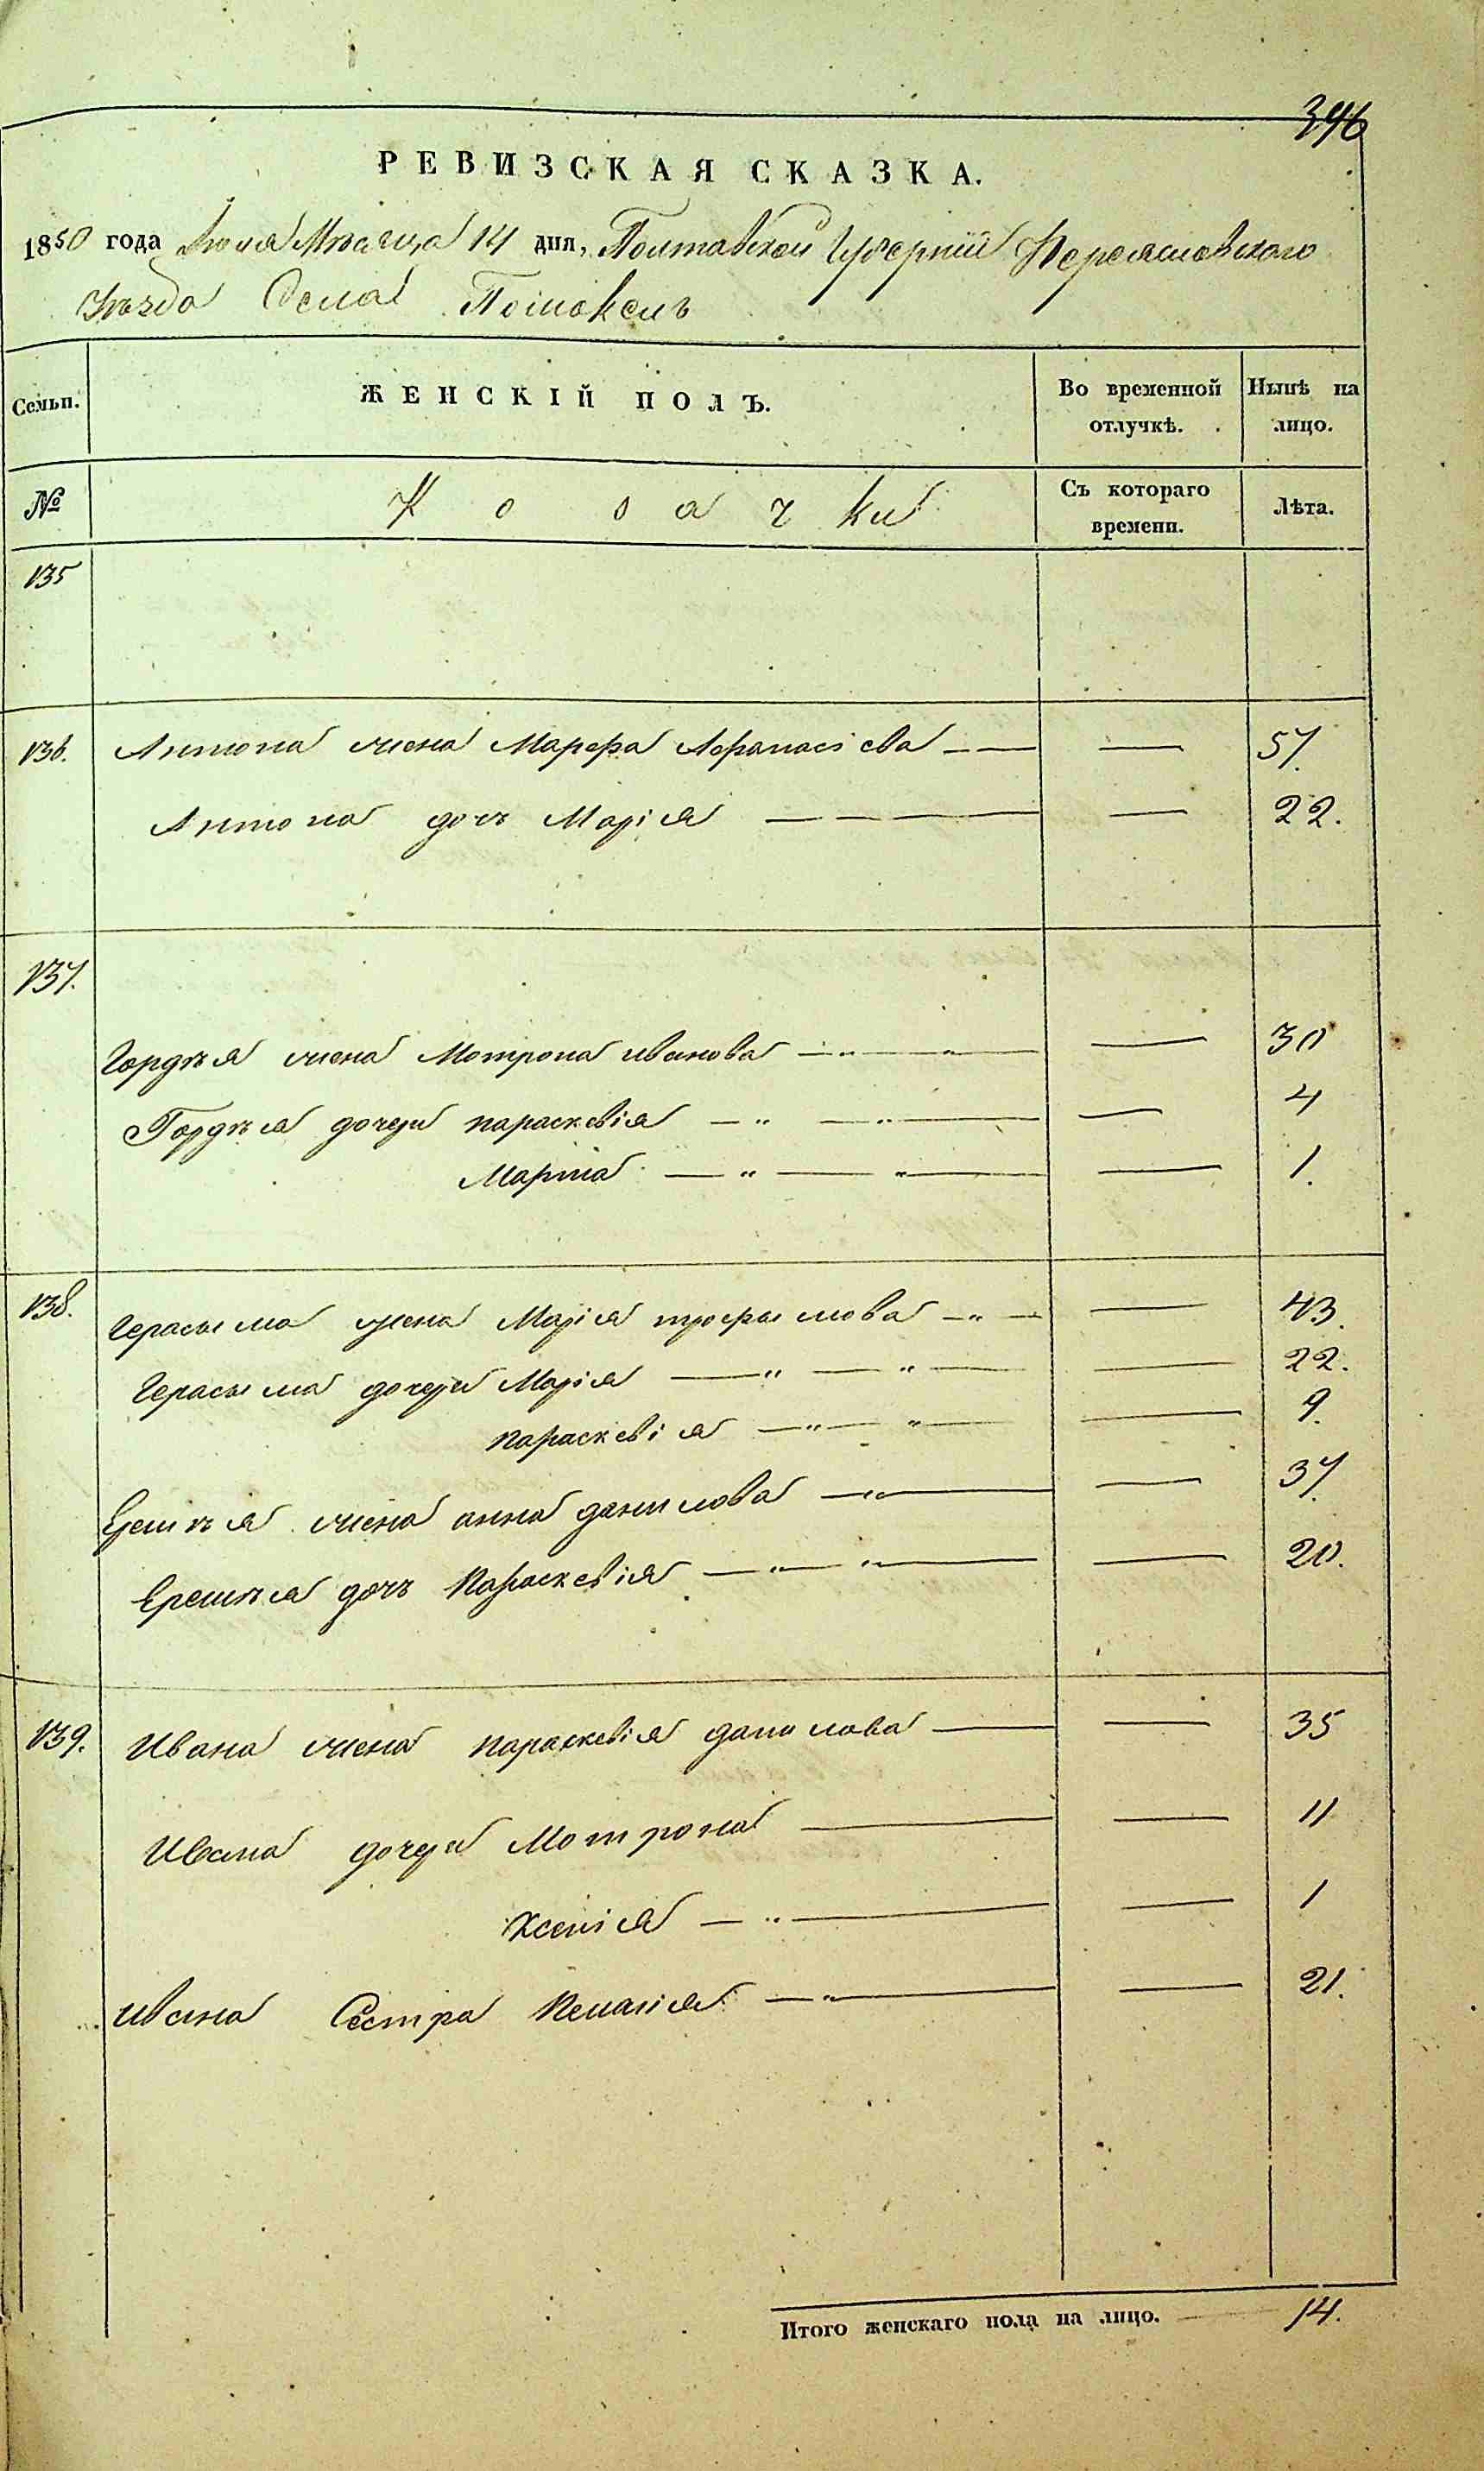 346
РЕВИЗСКАЯ СКАЗКА.
1850 года Июля Месяца 14 дня, Полтавской Губерніи Переяславского
Уѣзда Села
Семьи. ЖЕНСКІЙ ПОЛЪ. Во временной отлучкѣ. Нынѣ на лицо.
№ Козачки Съ котораго времени. Лѣта.
135
136. Антона жена Марфа Афанасіева — — — 57.
Антона дочь Марія — — — — 22.
137.
Гордѣя жена Мотрона иванова — „ — „ — — 30
Гордѣя дочери параскевія — „ — „ — — 4
Марта — „ — „ — — 1.
138. Герасыма жена Марія трофымова — „ — — 43.
Герасыма дочери Марія — „ — „ — — 22.
параскевія — „ — „ — — 9.
жена анна данилова — „ — — 37.
дочь Параскевія — „ — „ — — 20.
139. Ивана жена параскевія данилова — — 35
Ивана дочери Мотрона — — 11
Ксенія — „ — — 1
ивана Сестра — „ — — 21.
Итого женскаго пола на лицо. — 14.